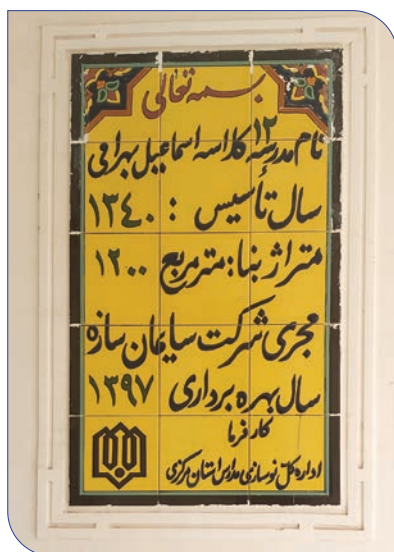 بسمه تعالی
نام مدرسه ۱۲ کلاسه اسماعیل بهرامی
سال تأسیس : ۱۳۴۰
متراژ بنا: مترمربع ۱۲۰۰
مجری شرکت سایمان سازه
سال بهره برداری ۱۳۹۷
کارفرما
اداره کل نوسازی مدارس استان مرکزی